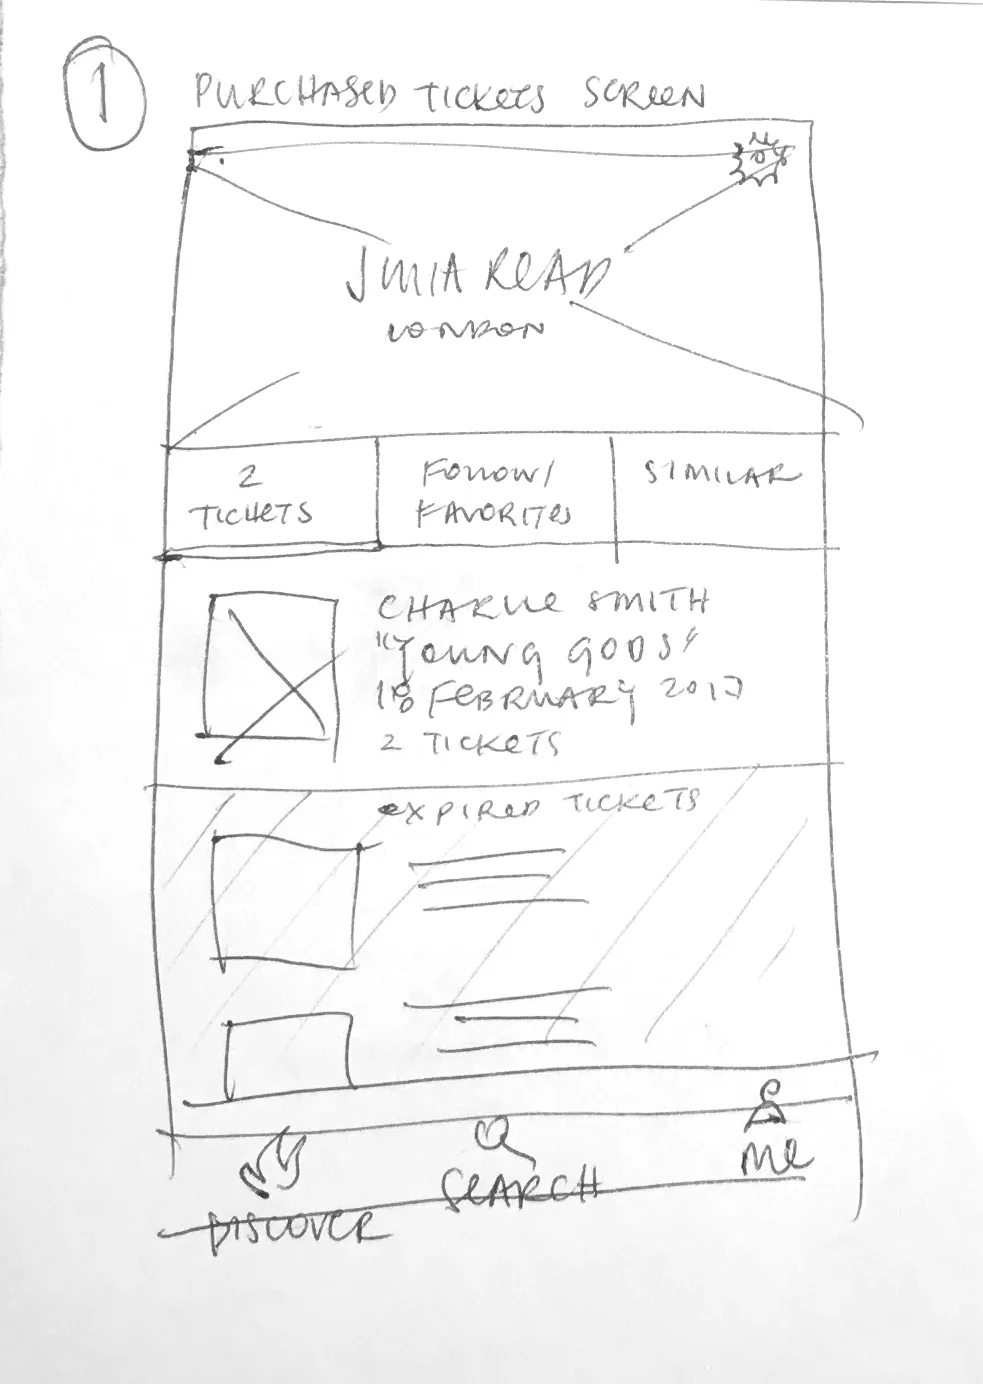 1
PURCHASED TICKETS SCREEN
JULIA READ
LONDON
2
TICKETS
FOLLOW/
FAVORITES
SIMILAR
CHARLIE SMITH
"YOUNG GODS"
18 FEBRUARY 2017
2 TICKETS
EXPIRED TICKETS
DISCOVER
SEARCH
ME